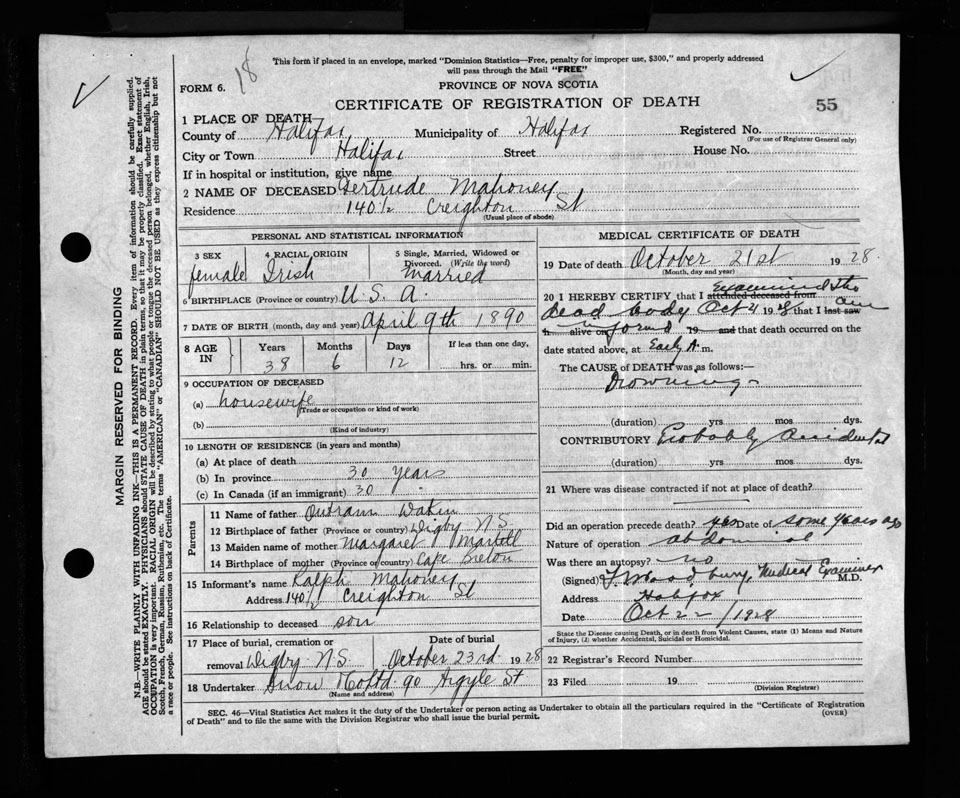 This form if placed in an envelope, marked "Dominion Statistics—Free, penalty for improper use, $300," and properly addressed
will pass through the Mail "FREE"
18
FORM 6.
PROVINCE OF NOVA SCOTIA
CERTIFICATE OF REGISTRATION OF DEATH
55
1 PLACE OF DEATH
County of Halifax Municipality of Halifax Registered No.
(For use of Registrar General only)
City or Town Halifax Street House No.
If in hospital or institution, give name
2 NAME OF DECEASED Gertrude Mahoney
Residence 140½ Creighton St
(Usual place of abode)
PERSONAL AND STATISTICAL INFORMATION
3 SEX 4 RACIAL ORIGIN 5 Single, Married, Widowed or
Divorced. (Write the word)
female Irish Married
6 BIRTHPLACE (Province or country) U.S.A.
7 DATE OF BIRTH (month, day and year) April 9th 1890
8 AGE IN Years Months Days If less than one day,
38 6 12 hrs. or min.
9 OCCUPATION OF DECEASED
(a) housewife
(Trade or occupation or kind of work)
(b)
(Kind of industry)
10 LENGTH OF RESIDENCE (in years and months)
(a) At place of death
(b) In province 30 years
(c) In Canada (if an immigrant) 30
Parents
11 Name of father Outram
12 Birthplace of father (Province or country) Digby N.S.
13 Maiden name of mother Margaret Martell
14 Birthplace of mother (Province or country) Cape Breton
15 Informant's name Ralph Mahoney
Address 140½ Creighton St
16 Relationship to deceased son
17 Place of burial, cremation or Date of burial
removal Digby N.S. October 23rd 1928
18 Undertaker Snow Co Ltd. 90 Argyle St
(Name and address)
MEDICAL CERTIFICATE OF DEATH
19 Date of death October 21st 1928
(Month, day and year)
examined the
20 I HEREBY CERTIFY that I attended deceased from
dead body Oct 21 1928 that I last saw am
h alive on informed 19 and that death occurred on the
date stated above, at Early A m.
The CAUSE of DEATH was as follows:—
Drowning
(duration) yrs mos dys.
CONTRIBUTORY Probably accidental
(duration) yrs mos dys.
21 Where was disease contracted if not at place of death?
Did an operation precede death? yes Date of some years ago
Nature of operation abdominal
Was there an autopsy? no
(Signed) F. Woodbury, Medical Examiner M.D.
Address Halifax
Date Oct 22 / 1928
State the Disease causing Death, or in death from Violent Causes, state (1) Means and Nature
of Injury, (2) whether Accidental, Suicidal or Homicidal.
22 Registrar's Record Number
23 Filed 19
(Division Registrar)
SEC. 46—Vital Statistics Act makes it the duty of the Undertaker or person acting as Undertaker to obtain all the particulars required in the "Certificate of Registration
of Death" and to file the same with the Division Registrar who shall issue the burial permit. (OVER)
MARGIN RESERVED FOR BINDING
N.B.—WRITE PLAINLY WITH UNFADING INK—THIS IS A PERMANENT RECORD. Every item of information should be carefully supplied.
AGE should be stated EXACTLY. PHYSICIANS should STATE CAUSE OF DEATH in plain terms, so that it may be properly classified. Exact statement of
OCCUPATION is very important. RACIAL ORIGIN will be described by stating to what people or tongue the deceased person belonged, whether English, Irish,
Scotch, French, German, Russian, Ruthenian, etc. The terms "AMERICAN" or "CANADIAN" SHOULD NOT BE USED as they express citizenship but not
a race or people. See instructions on back of Certificate.